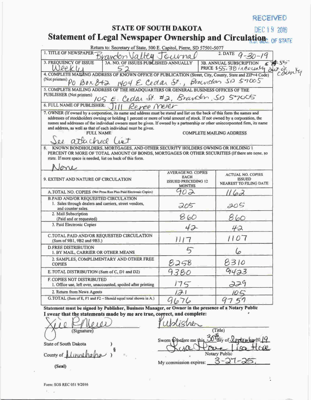 RECEIVED
DEC 19 2019
STATE OF SOUTH DAKOTA
Statement of Legal Newspaper Ownership and Circulation
SEC. OF STATE
Return to: Secretary of State, 500 E. Capitol, Pierre, SD 57501-5077
1. TITLE OF NEWSPAPER Brandon Valley Journal
2. DATE 9-30-19
3. FREQUENCY OF ISSUE Weekly
3A. NO. OF ISSUES PUBLISHED ANNUALLY 52
3B. ANNUAL SUBSCRIPTION PRICE $55.38 in county out of county
4. COMPLETE MAILING ADDRESS OF KNOWN OFFICE OF PUBLICATION (Street, City, County, State and ZIP+4 Code) (Not printers)
PO Box 842 1404 E. Cedar St. Brandon SD 57005
5. COMPLETE MAILING ADDRESS OF THE HEADQUARTERS OR GENERAL BUSINESS OFFICES OF THE
PUBLISHER (Not printer)
105 E. Cedar St. #2, Brandon, SD 57005
6. FULL NAME OF PUBLISHER: Jill Meier
7. OWNER (If owned by a corporation, its name and address must be stated and also immediately thereafter the names and
FULL NAME
COMPLETE MAILING ADDRESS
See attached list
8. KNOWN BONDHOLDERS, MORTGAGES, AND OTHER SECURITY HOLDERS OWNING OR HOLDING 1
PERCENT OR MORE OF TOTAL AMOUNT OF BONDS, MORTGAGES OR OTHER SECURITIES (If there are none, so
state. If more space is needed, list on back of this form.
None
9. EXTENT AND NATURE OF CIRCULATION
AVERAGE NO. COPIES EACH ISSUED PRECEDING 12 MONTHS
ACTUAL NO. COPIES ISSUED NEAREST TO FILING DATE
A. TOTAL NO. COPIES 902 1162
B. PAID AND/OR REQUESTED CIRCULATION
1. Sales through dealers and carriers, street vendors, and counter sales 205 205
2. Mail Subscription (Paid and or requested) 860 860
3. Paid Electronic Copies 42 42
C. TOTAL PAID AND/OR REQUESTED CIRCULATION (Sum of 9B1, 9B2 and 9B3.) 1117 1107
D. FREE DISTRIBUTION
1. BY MAIL, CARRIER OR OTHER MEANS 5 6
2. SAMPLES, COMPLIMENTARY AND OTHER FREE COPIES 8258 8310
E. TOTAL DISTRIBUTION (Sum of C, D1 and D2) 9380 9423
F. COPIES NOT DISTRIBUTED
1. Office use, left over, unaccounted, spoiled after printing 175 229
2. Return from News Agents 121 105
G. TOTAL (Sum of E, F1 and F2 - Should equal total shown in A.) 9676 9757
Statement must be signed by Publisher, Business Manager, or Owner in the presence of a Notary Public
I swear that the statements made by me are true, correct, and complete:
Publisher
(Signature)
(Title)
State of South Dakota )
County of Minnehaha )
Sworn to before me this 30th day of September 19
Lisa Howe
Notary Public
(Seal)
My commission expires: 3-27-25
Form: SOS REC 051 9/2016